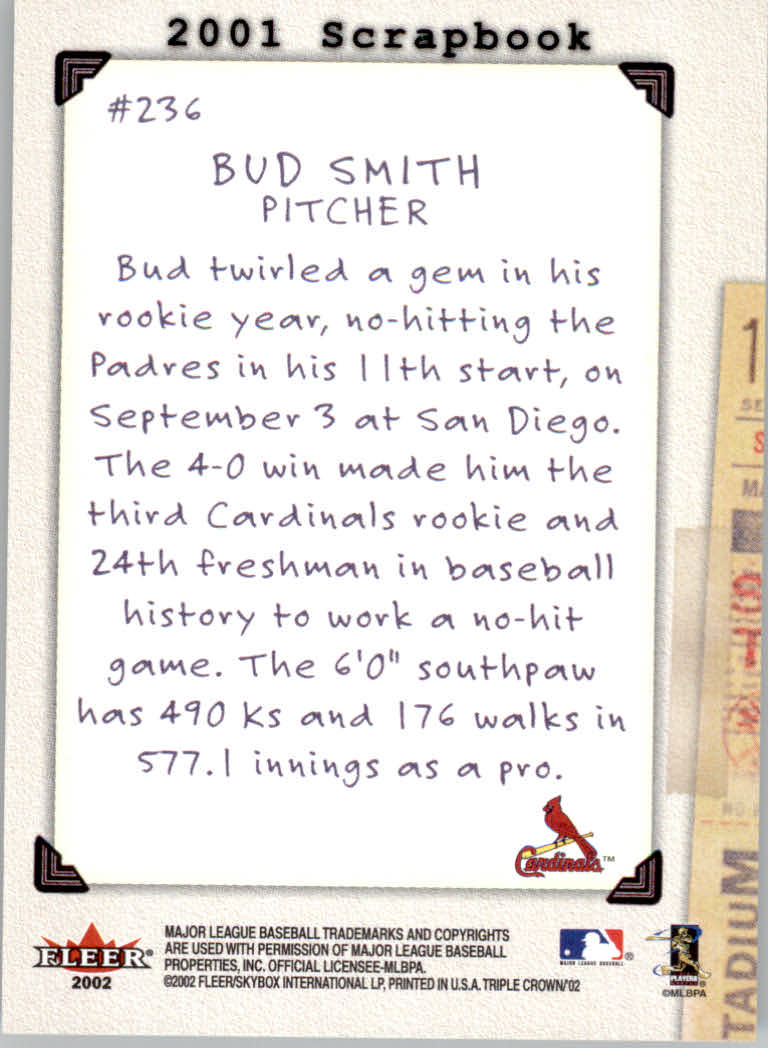 2001 Scrapbook
#236
BUD SMITH
PITCHER
Bud twirled a gem in his
rookie year, no-hitting the
Padres in his 11th start, on
September 3 at San Diego.
The 4-0 win made him the
third Cardinals rookie and
24th freshman in baseball
history to work a no-hit
game. The 6'0" southpaw
has 490 Ks and 176 walks in
577.1 innings as a pro.
Cardinals™
1
SE
S
MA
TADIUM
FLEER®
2002
MAJOR LEAGUE BASEBALL TRADEMARKS AND COPYRIGHTS
ARE USED WITH PERMISSION OF MAJOR LEAGUE BASEBALL
PROPERTIES, INC. OFFICIAL LICENSEE-MLBPA.
©2002 FLEER/SKYBOX INTERNATIONAL LP, PRINTED IN U.S.A. TRIPLE CROWN/'02
MAJOR LEAGUE BASEBALL®
PLAYERS
©MLBPA